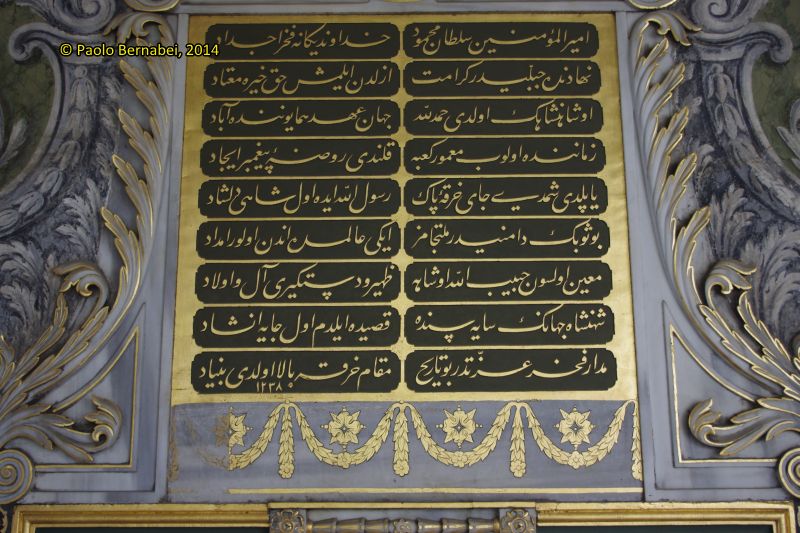 © Paolo Bernabei, 2014
امیر المؤمنین سلطان محمود خداوند یکانه فخر اجداد
نهادنده جبلیدر کرامت ازلدن ایلمش حق خیره معتاد
او شاهنشاهک اولدی حمد لله جهان عهد همایوننده آباد
زماننده اولوب معمور کعبه قلندی روضهٔ پیغمبر ایجاد
یاپلدی شمدی جای خرقهٔ پاک رسول الله ایده اول شاهی دلشاد
بو ثوبک دامنیدر ملتجامز ایکی عالمده اندن اولور امداد
معین اولسون حبیب الله او شاهه ظهیر و دستگیری آل و اولاد
شهنشاه جهانک سایه سنده قصیده ایلدم اول جایه انشاد
مدار فخر عزتدر بو تاریخ مقام خرقه بالا اولدی بنیاد
١٢٣٨